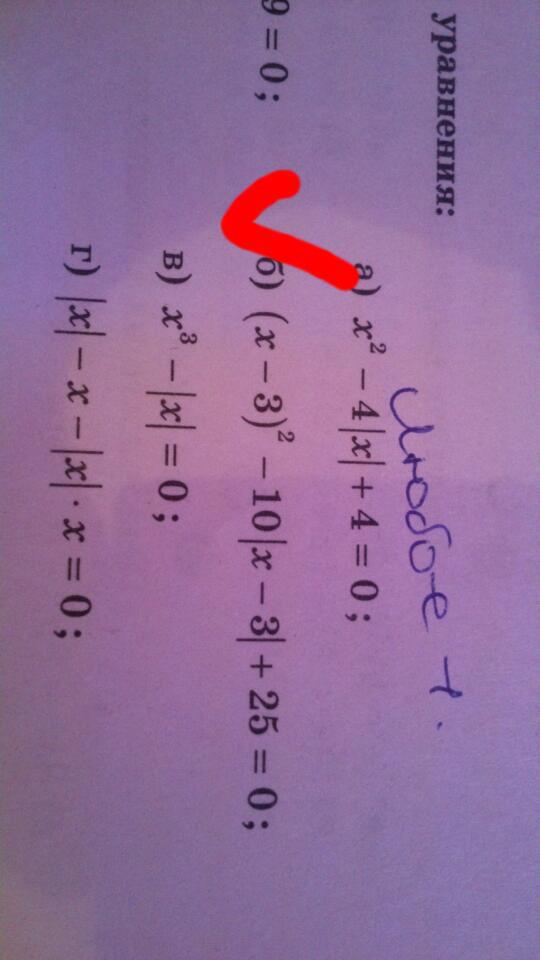 уравнения:
9 = 0;
а) x² − 4|x| + 4 = 0;
б) (x − 3)² − 10|x − 3| + 25 = 0;
в) x³ − |x| = 0;
г) |x| − x − |x| · x = 0;